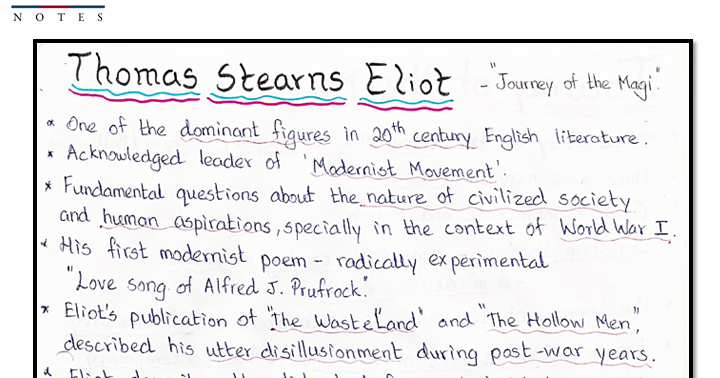 NOTES
Thomas Stearns Eliot - "Journey of the Magi".
* One of the dominant figures in 20th century English literature.
* Acknowledged leader of 'Modernist Movement'.
* Fundamental questions about the nature of civilized society
and human aspirations, specially in the context of World War I.
* His first modernist poem - radically experimental
"Love song of Alfred J. Prufrock."
* Eliot's publication of "The Waste Land" and "The Hollow Men",
described his utter disillusionment during post-war years.